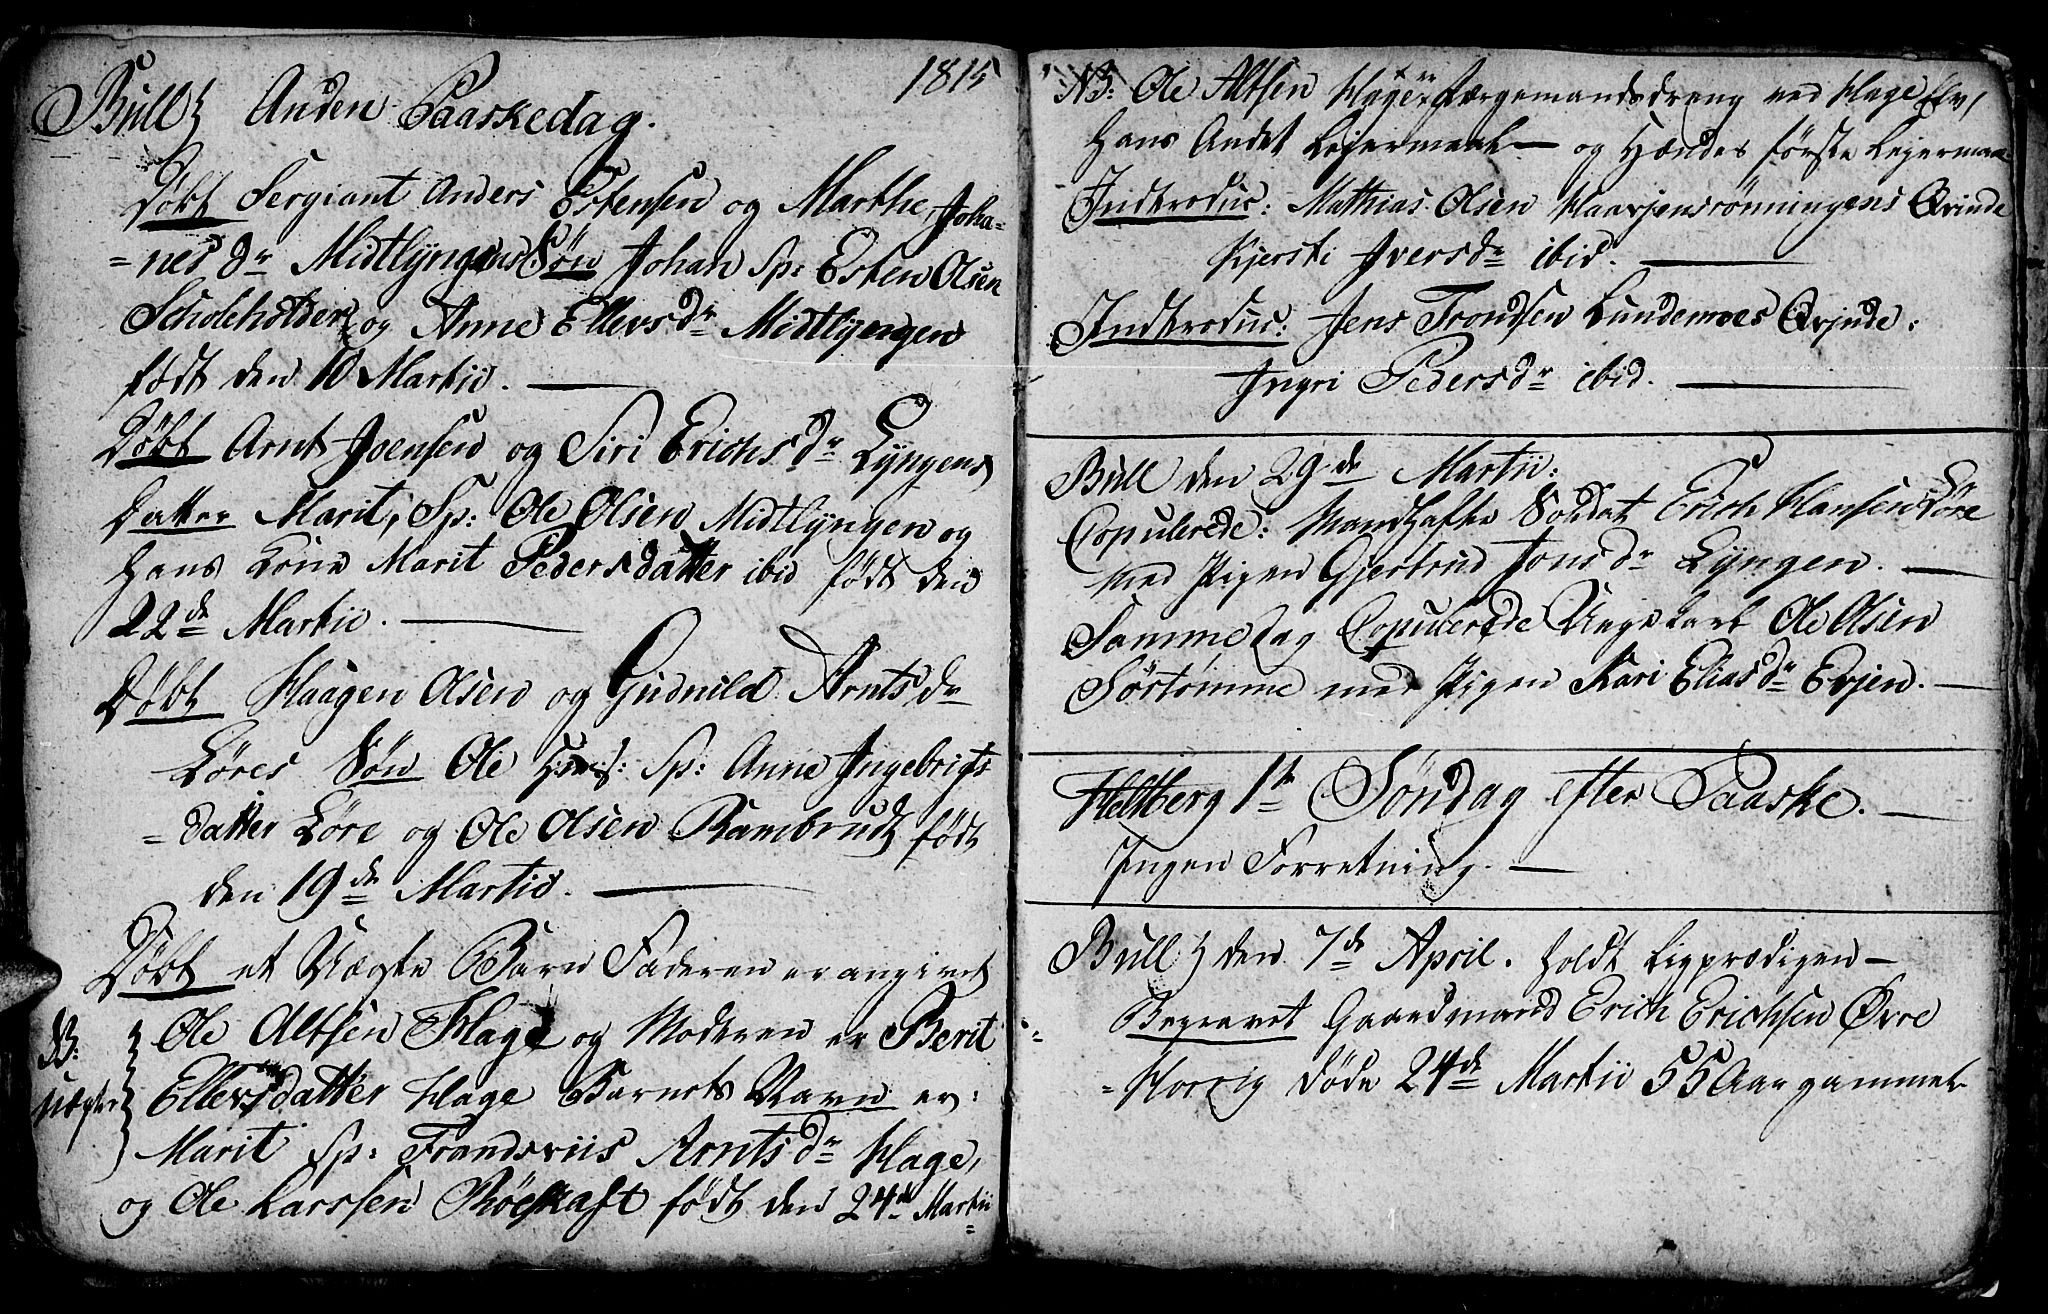 1815
Bull} Anden Paaskedag.
Döbt Sergiant Anders Estensen og Marthe Joha-
=nes dr Midtlyngens Søn Johan Sp: Esten Olsen
Scholeholder og Anne Ellevsdr Midtlyngen
født den 10 Martii.
Döbt Arnt Joensen og Siri Erichsdr Lyngens
Datter Marit, Sp: Ole Olsen Midtlyngen og
hans Kone Marit Pedersdatter ibid født den
22de Martii.
Döbt Haagen Olsen og Gudnild Arntsdr
Löres Søn Ole Sp: Anne Ingebrigts
=datter Löre og Ole Olsen Rambrudt født
den 19de Martii.
Döbt et Uægte Barn Faderen er angivet
Ole Altsen Hage og Moderen er Berit
NB: uægte} Ellevsdatter Hage Barnets Navn er:
Marit Sp: Trondsviis Arntsdr Hage,
og Ole Larssen Röeskaft født den 24de Martii
NB: Ole Altsen Hage er Færgemandsdreng ved Hage Elv,
hans Andet Lejermaal og hendes første Lejermaa
Introduc: Mathias Olsen Haarjensrönningens Qvinde
Kjersti Iversdr ibid.
Introduc: Jens Trondsen Lundemoes Qvinde:
Ingri Pedersdr ibid.
Bull den 29de Martii:
Copulerede: Mandhafte Soldat Erich Hansen Löre
med Pigen Gjertrud Jonsdr Lyngen.
Samme dag Copulerede Ungekarl Ole Olsen
Sörtömme med Pigen Kari Eliasdr Evjen.
Heltberg 1te Söndag efter Paaske.
Ingen Forretning.
Bull} den 7de April. holdt Ligprædiken
Begravet Gaardmand Erich Erichsen Øvre
=Horrig døde 24de Martii 55 Aar gammel